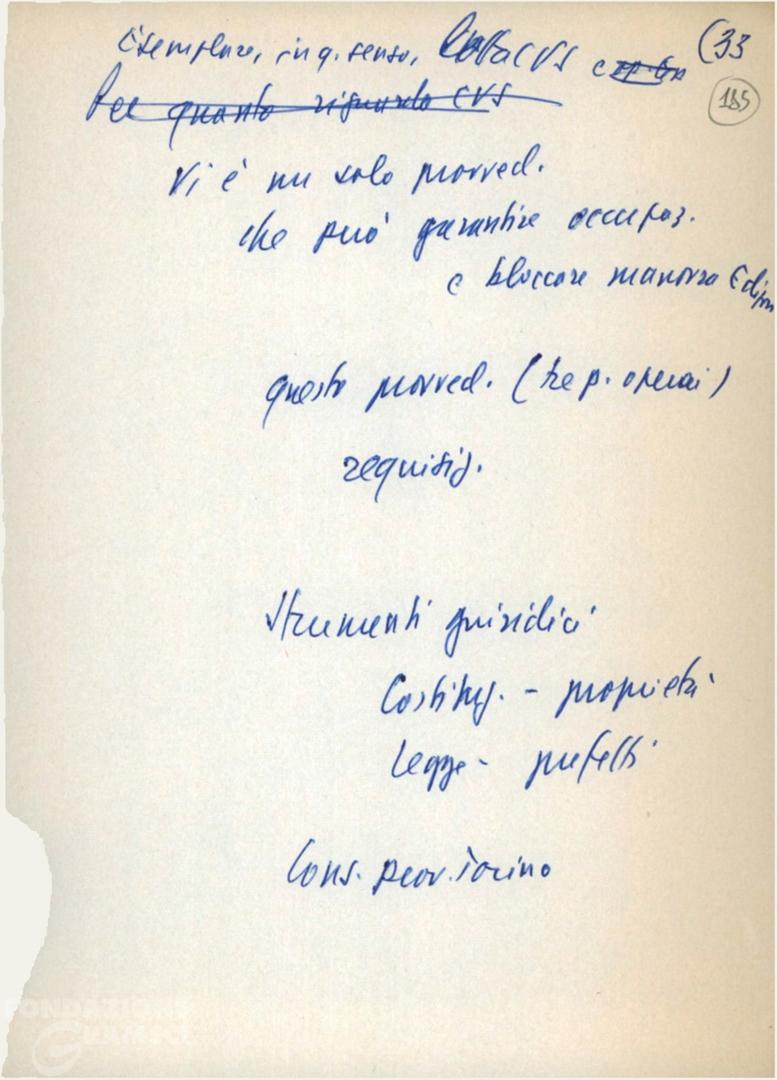 (33
185
Esemplare, in q. senso, lotta CVS
Per quanto riguarda CVS
Vi è un solo provved.
che può garantire occupaz.
e bloccare manovra Edison
questo provved. (ne p. operai)
requisiz.
Strumenti giuridici
Costituz. - proprietà
Legge - prefetti
Cons. prov. Torino
FONDAZIONE
GRAMSCI